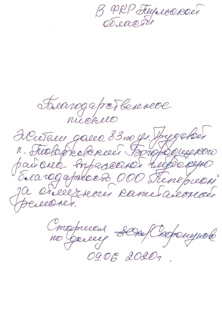 В ФКР Тульской
области
Благодарственное
письмо
Жители дома 83 по ул. Трудовой
п. Товарковский Богородицкого
района выражают глубокую
благодарность ООО "Гиперион"
за отличный капитальный
ремонт.
Старшая
по дому
09.06.2020г.